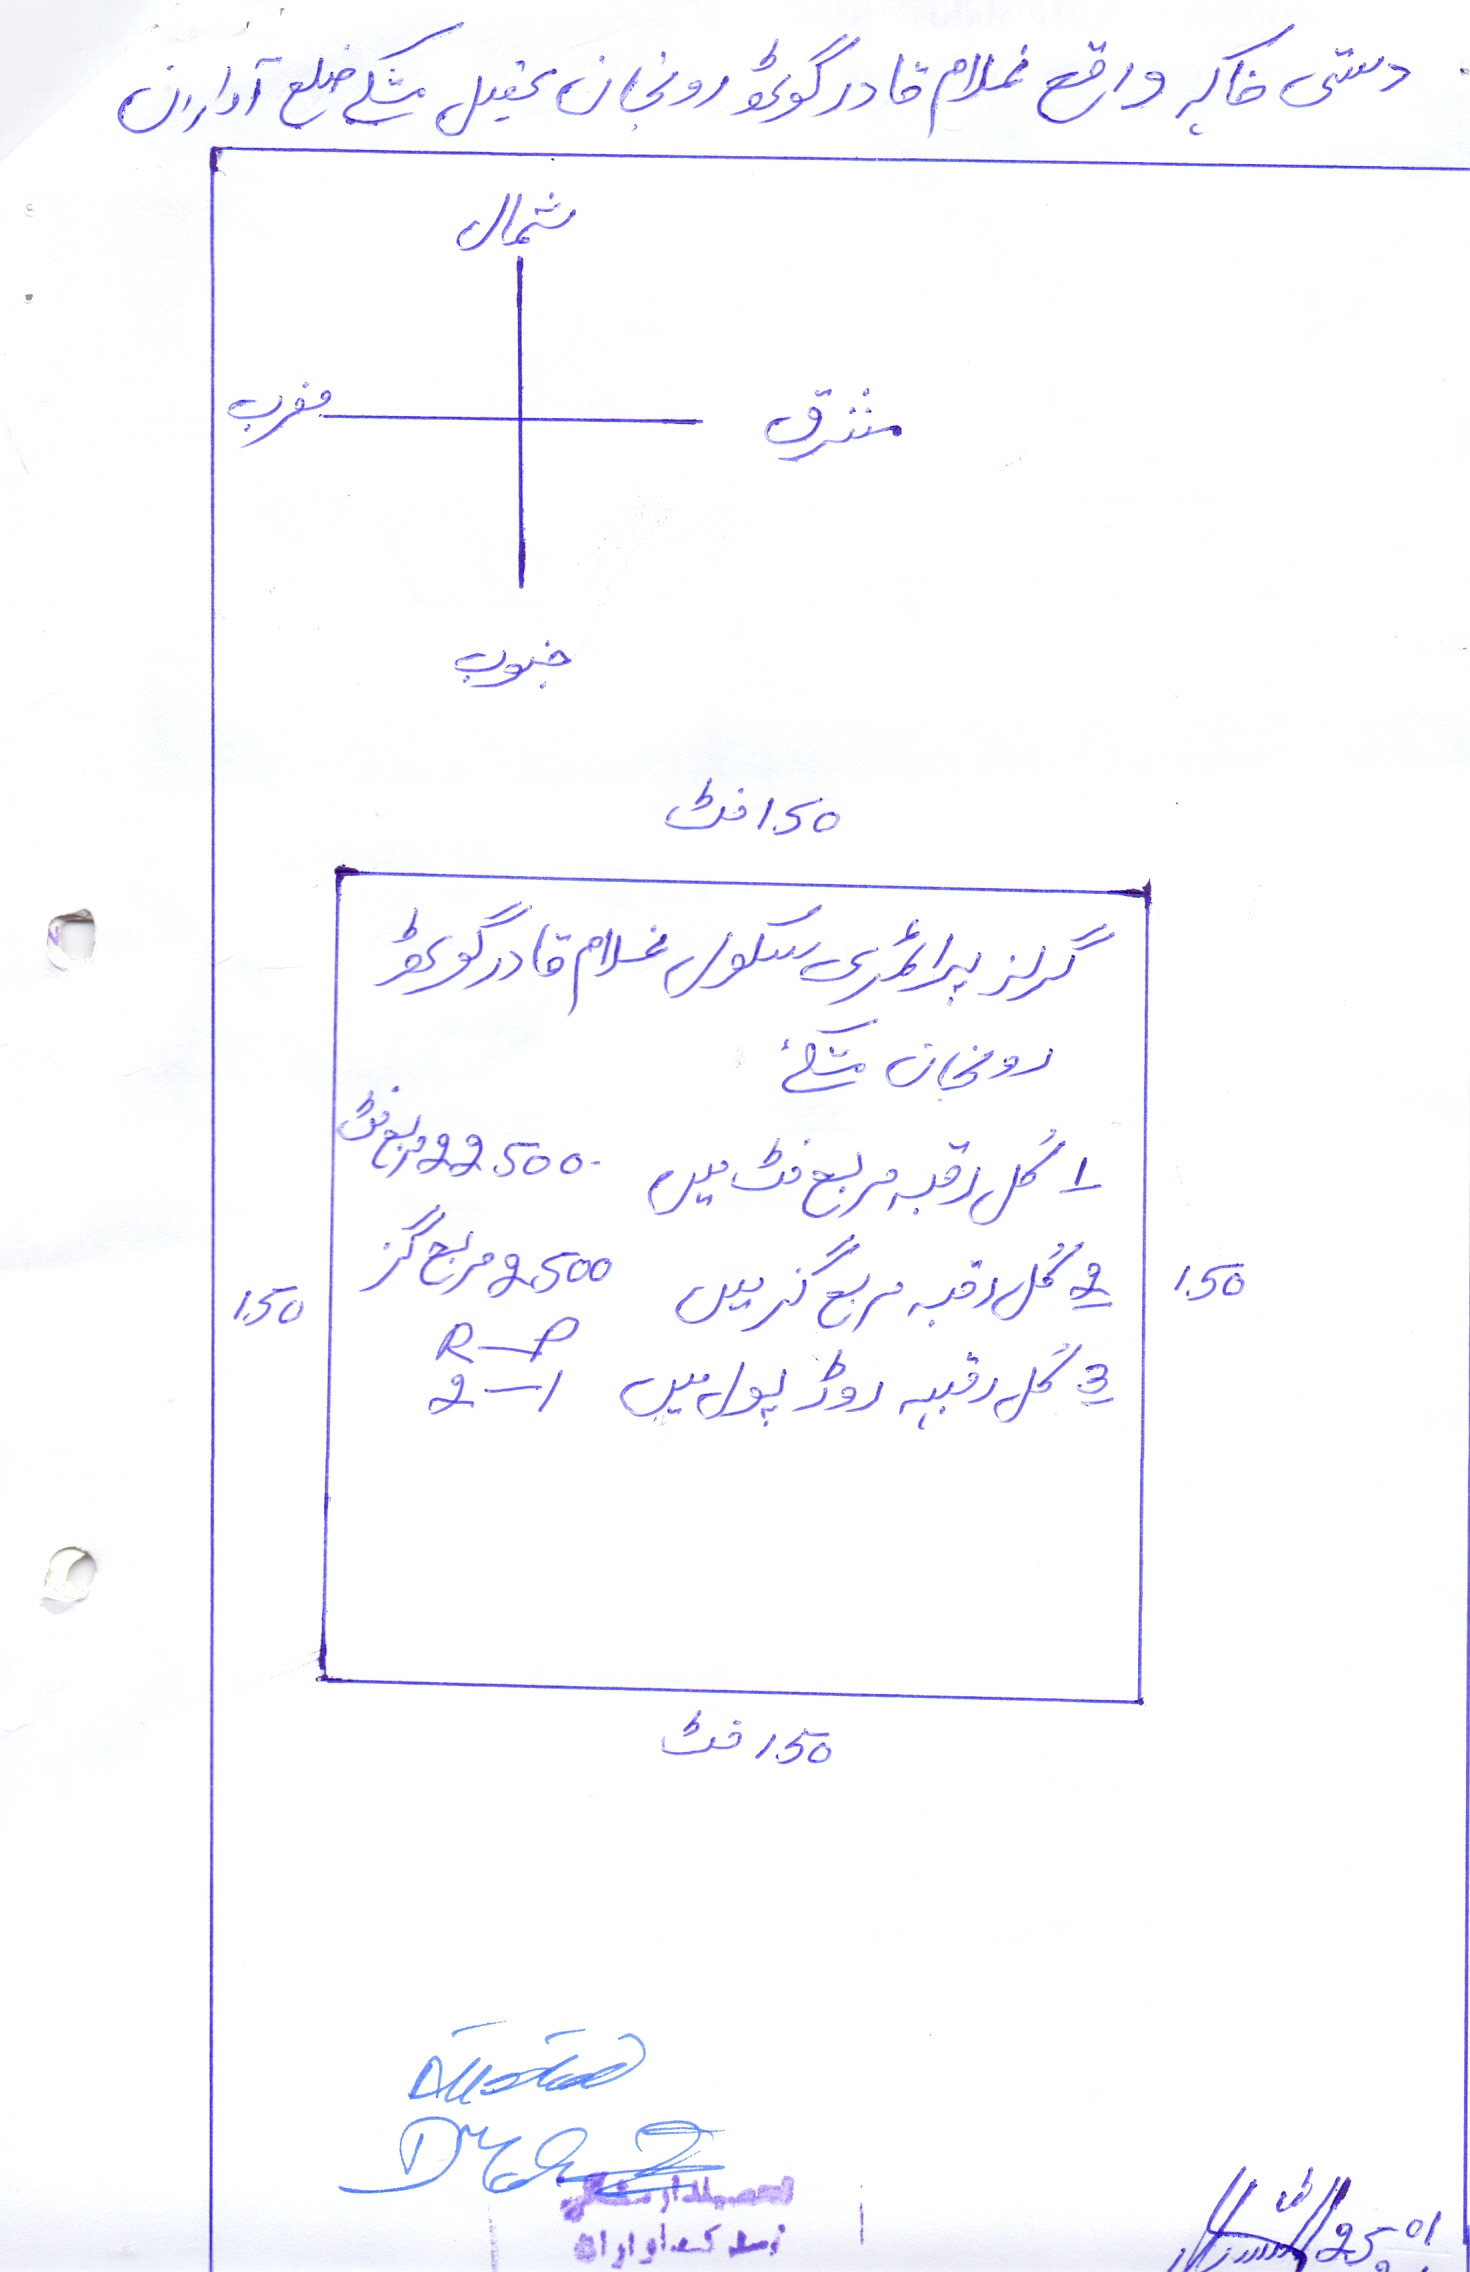 دستی خاکہ واقع غلام قادر گوٹھ رونجان تحصیل مشکے ضلع آواران
شمال
مغرب
مشرق
جنوب
150 فٹ
گرلز پرائمری سکول غلام قادر گوٹھ
رونجان مشکے
1 کل رقبہ مربع فٹ میں 22500 مربع فٹ
2 کل رقبہ مربع گز میں 2500 مربع گز
150
150
R—P
3 کل رقبہ روڈ پول میں 2—1
150 فٹ
Attested
تحصیلدار مشکے
ضلع آواران
25-01